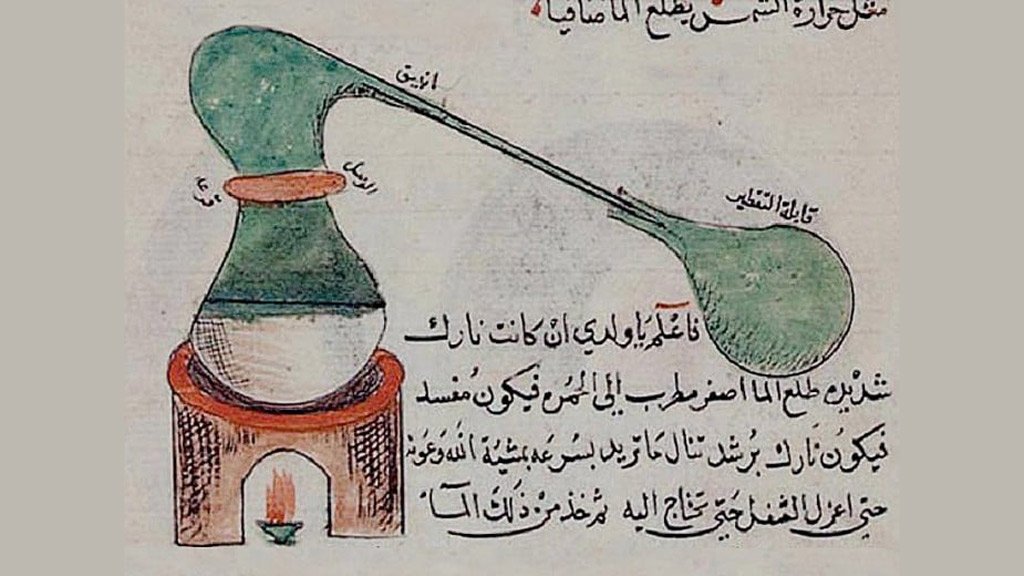 مثل حرارة الشمس يطلع الما صافيا
انبيق
الوصل
قرعة
قابلة التقطير
فاعلم يا ولدي ان كانت نارك
شديده طلع الما اصفر مطرب إلى الحمره فيكون مفسد
فيكون نارك برشد تنال ما تريد بسرعه بمشية الله وعونه
حتى اعزل الثفل حتى تحتاج اليه ثم خذ من ذلك المآ